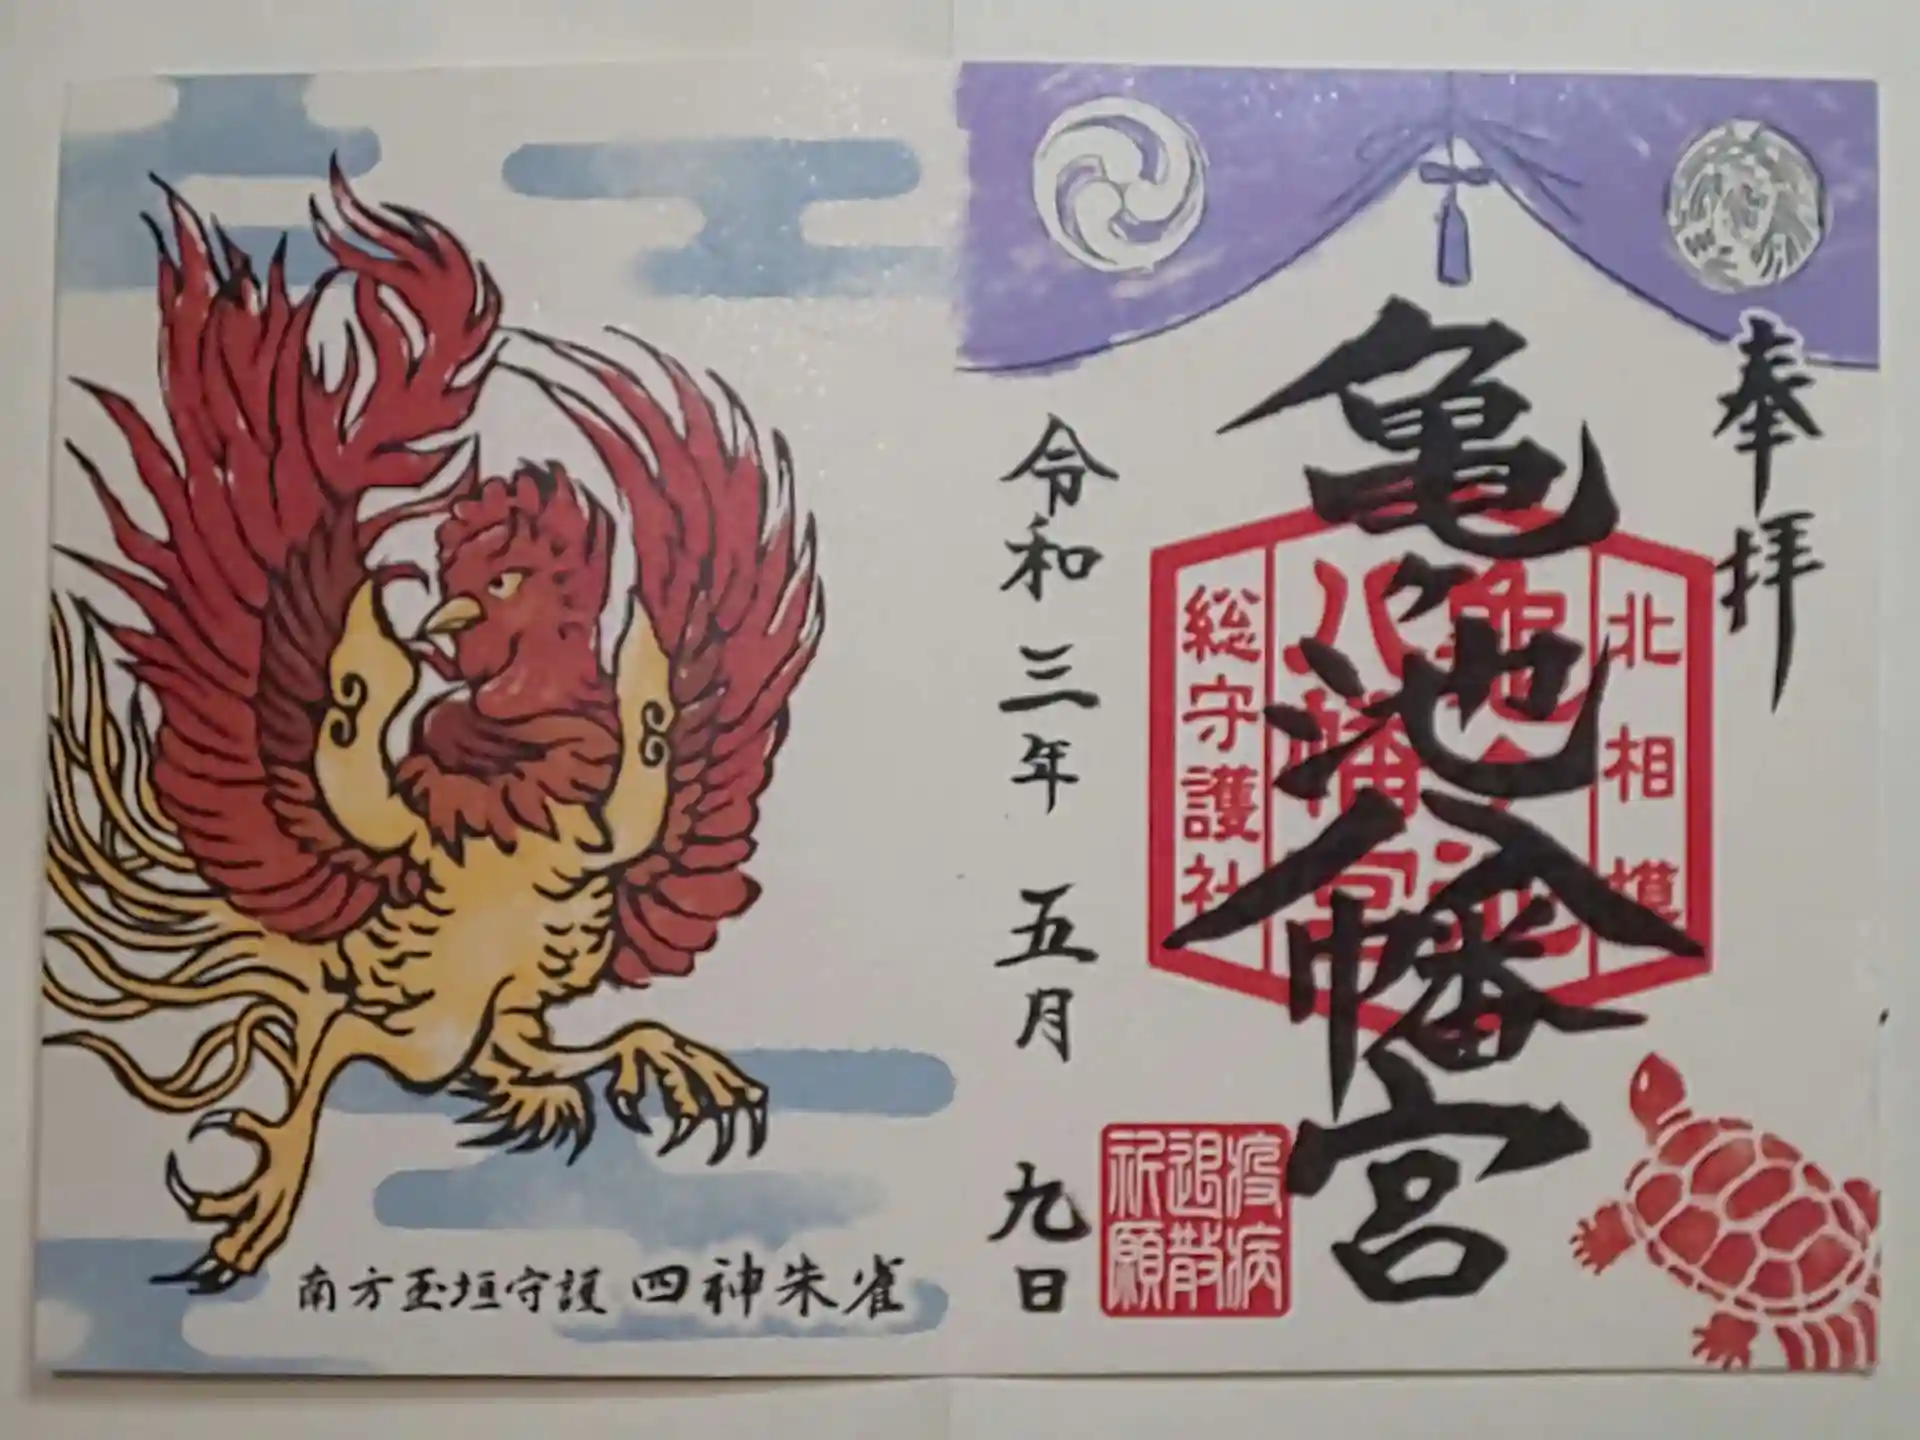 奉拝
亀ヶ池八幡宮
北相模
亀ヶ池
八幡宮
総守護社
令和三年五月九日
疫病
退散
祈願
南方玉垣守護 四神朱雀